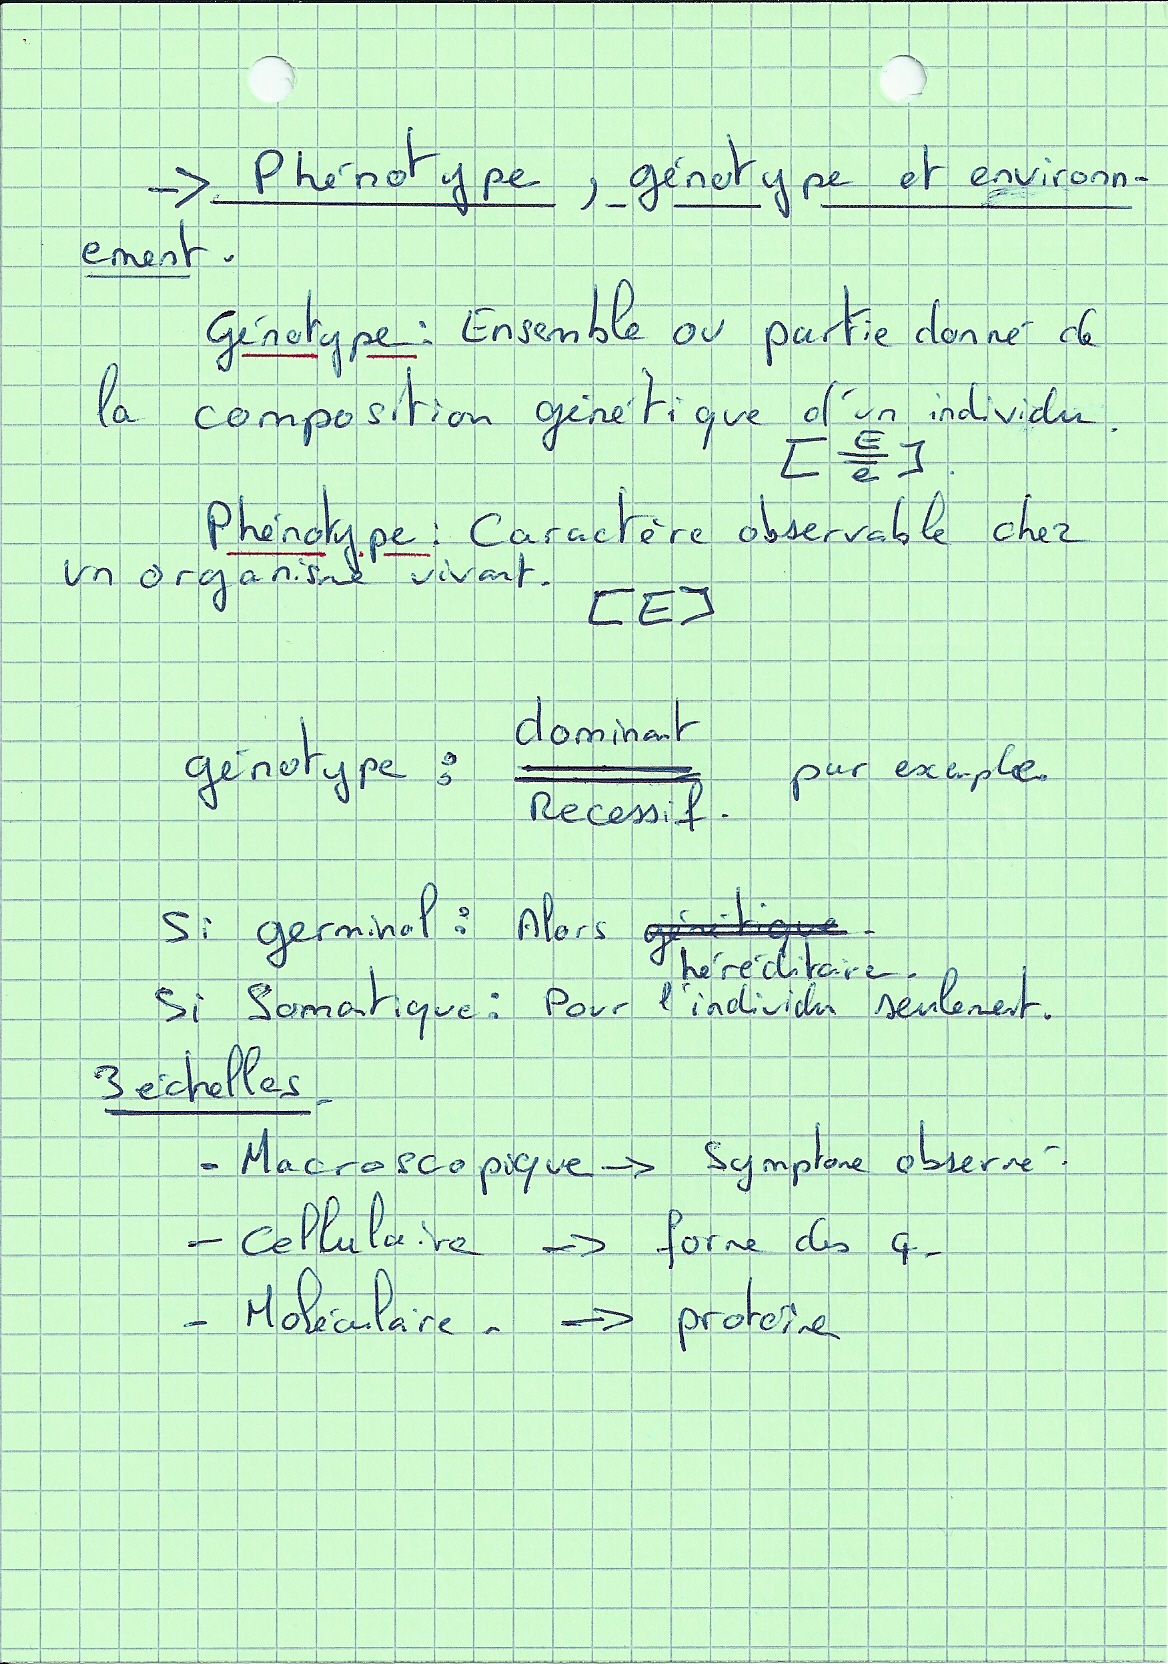 -> Phénotype, génotype et environn-
ement.
Génotype : Ensemble ou partie donné de
la composition génétique d'un individu.
[E/e].
Phénotype : Caractère observable chez
un organisme vivant.
[E]
dominant
génotype : par exemple.
Recessif.
Si germinal : Alors génétique.
héréditaire.
Si Somatique : Pour l'individu seulement.
3 échelles.
- Macroscopique -> Symptome observé.
- Cellulaire -> forme des
- Moléculaire. -> protéine